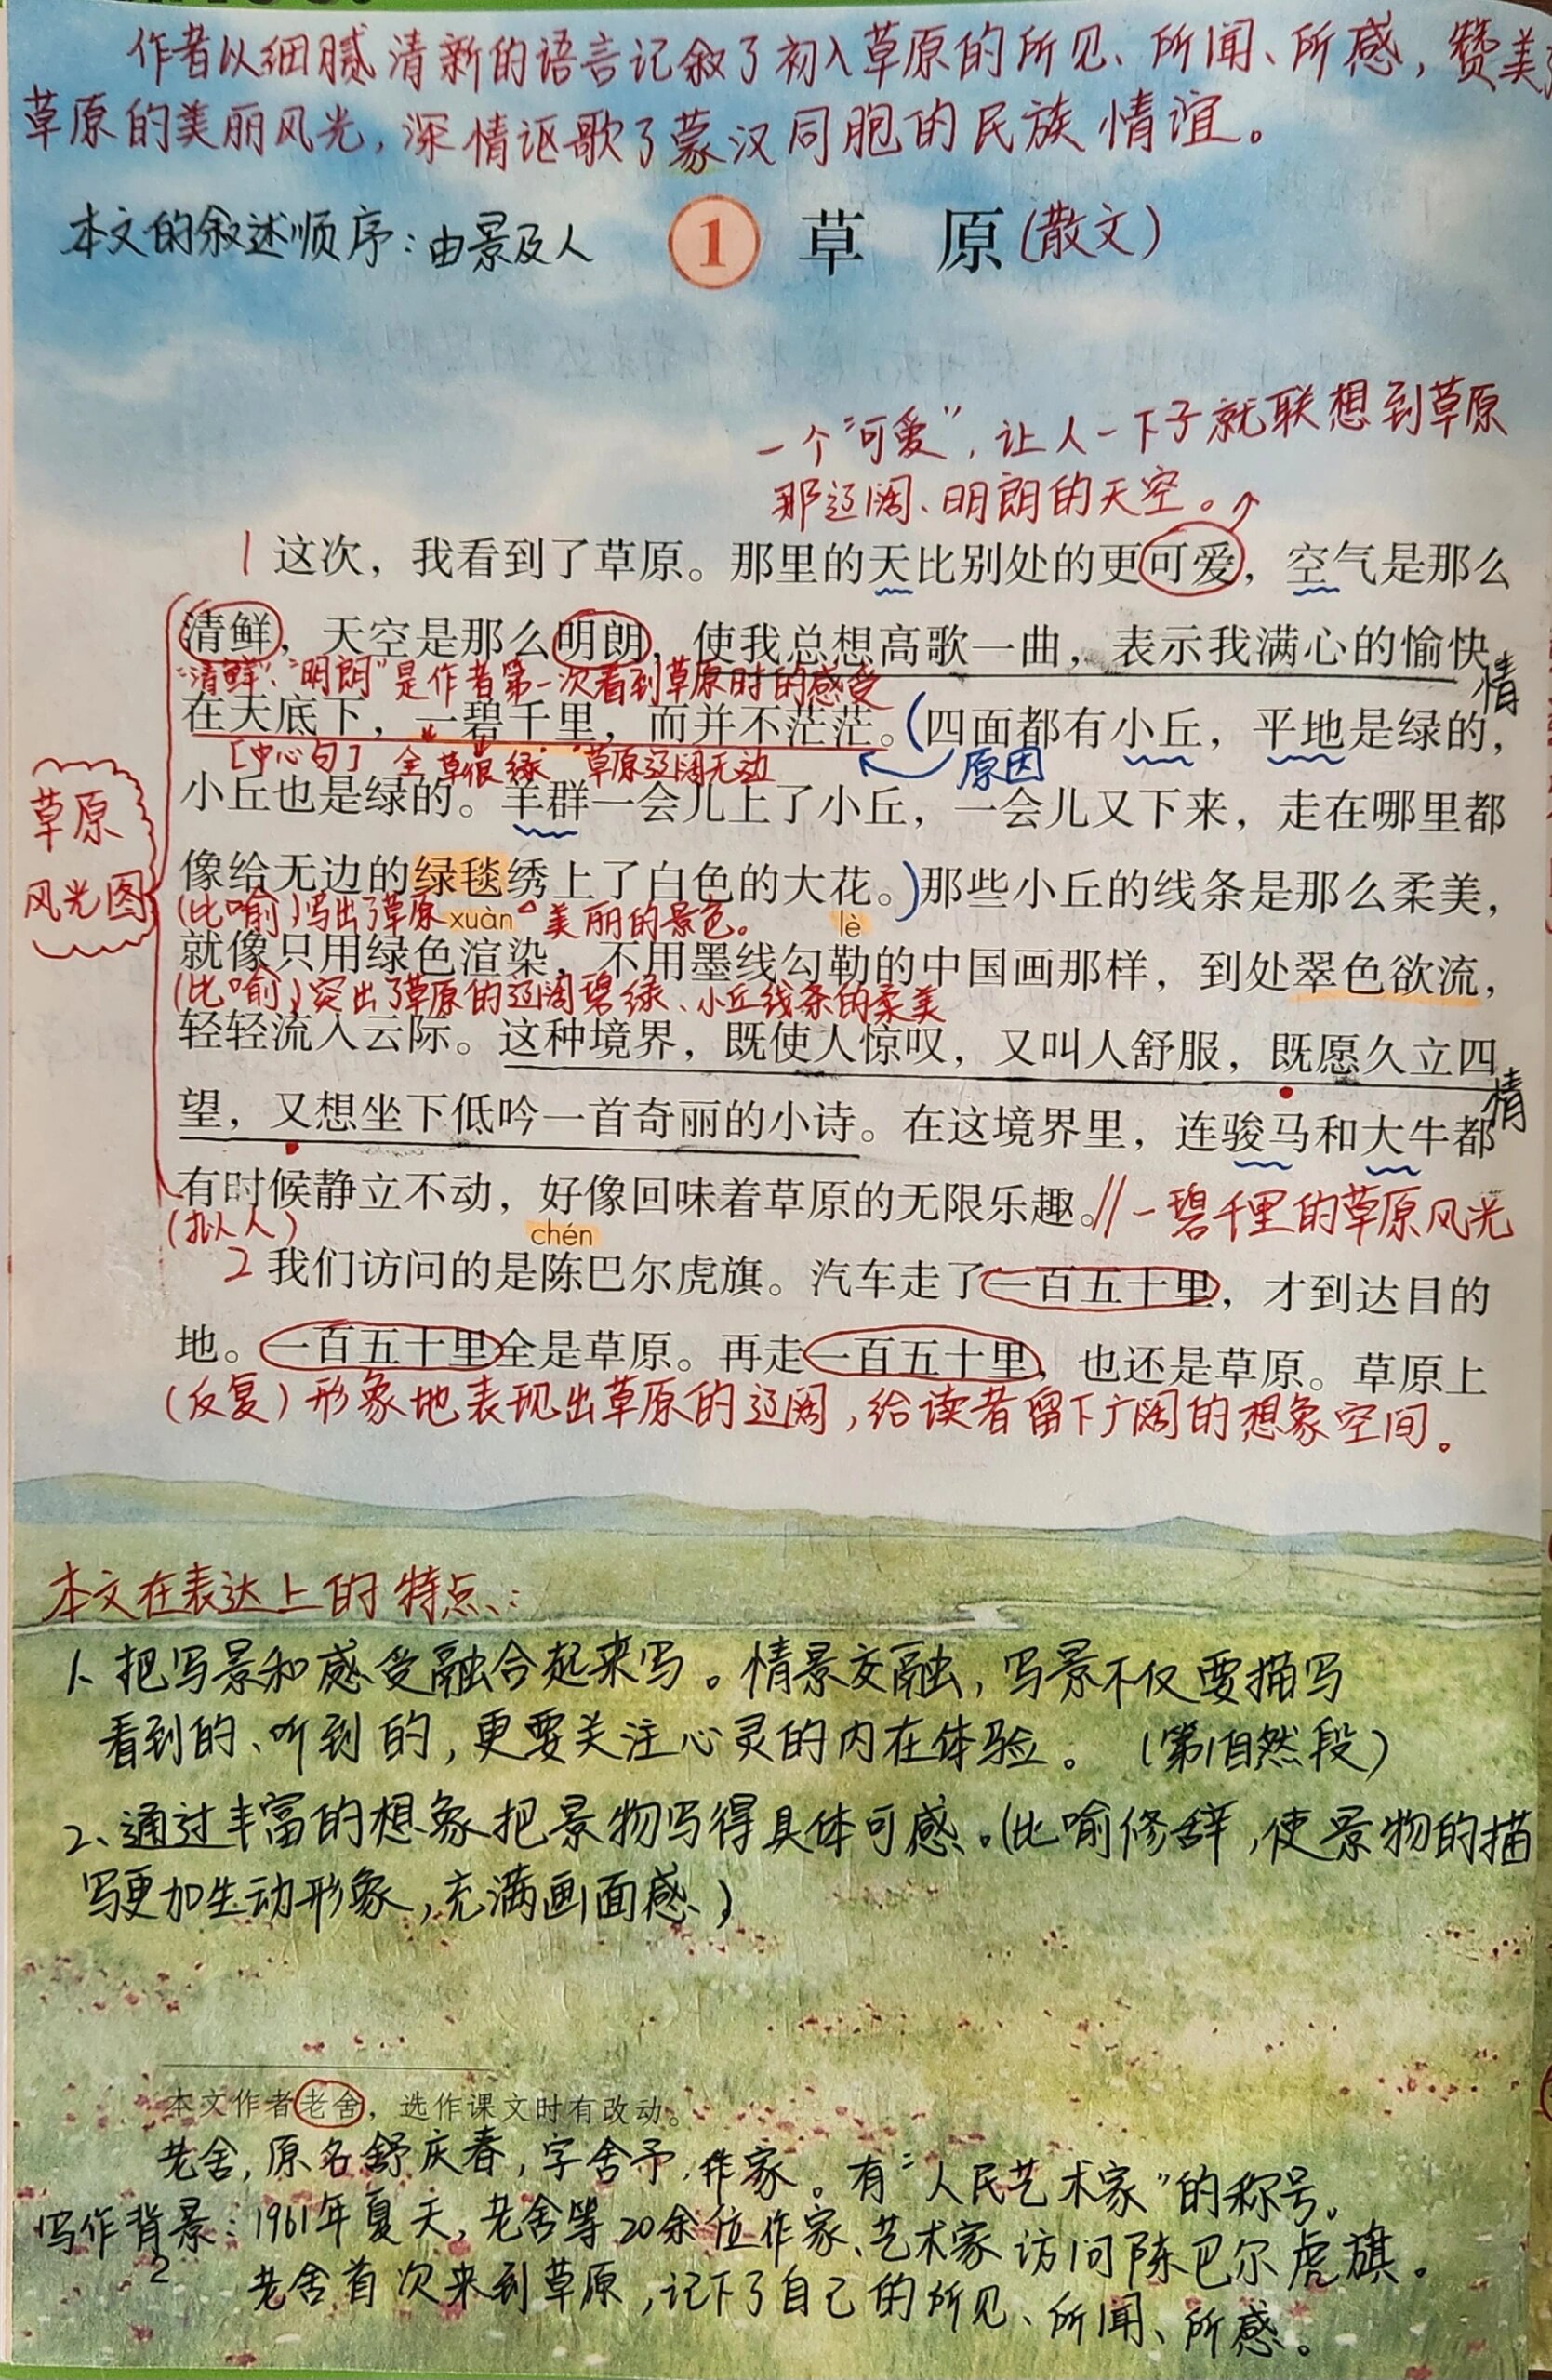 作者以细腻清新的语言记叙了初入草原的所见、所闻、所感，赞美
草原的美丽风光，深情讴歌了蒙汉同胞的民族情谊。
本文的叙述顺序：由景及人
1 草 原(散文)
一个“可爱”，让人一下子就联想到草原
那辽阔、明朗的天空。
1 这次，我看到了草原。那里的天比别处的更可爱，空气是那么
清鲜，天空是那么明朗，使我总想高歌一曲，表示我满心的愉快。
情
“清鲜”、“明朗”是作者第一次看到草原时的感受
在天底下，一碧千里，而并不茫茫。(四面都有小丘，平地是绿的，
[中心句] 全 草很绿 草原辽阔无边
原因
小丘也是绿的。羊群一会儿上了小丘，一会儿又下来，走在哪里都
草原
风光图
像给无边的绿毯绣上了白色的大花。)那些小丘的线条是那么柔美，
(比喻)写出了草原美丽的景色。
xuàn lè
就像只用绿色渲染，不用墨线勾勒的中国画那样，到处翠色欲流，
(比喻)突出了草原的辽阔碧绿、小丘线条的柔美
轻轻流入云际。这种境界，既使人惊叹，又叫人舒服，既愿久立四
情
望，又想坐下低吟一首奇丽的小诗。在这境界里，连骏马和大牛都
有时候静立不动，好像回味着草原的无限乐趣。//一碧千里的草原风光
(拟人)
chén
2 我们访问的是陈巴尔虎旗。汽车走了一百五十里，才到达目的
地。一百五十里全是草原。再走一百五十里，也还是草原。草原上
(反复)形象地表现出草原的辽阔，给读者留下广阔的想象空间。
本文在表达上的特点：
1、把写景和感受融合起来写。情景交融，写景不仅要描写
看到的、听到的，更要关注心灵的内在体验。(第1自然段)
2、通过丰富的想象把景物写得具体可感。(比喻修辞，使景物的描
写更加生动形象，充满画面感)
本文作者老舍，选作课文时有改动。
老舍，原名舒庆春，字舍予，作家。有“人民艺术家”的称号。
写作背景：1961年夏天，老舍等20余位作家、艺术家访问陈巴尔虎旗。
2
老舍首次来到草原，记下了自己的所见、所闻、所感。